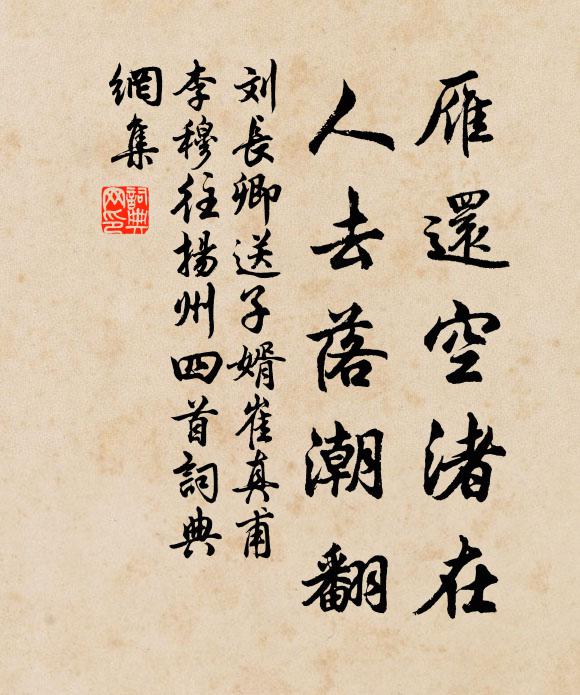 雁還空渚在
人去落潮翻
刘長卿送子婿崔真甫
李穆往揚州四首詞典
網集
詞典
网印